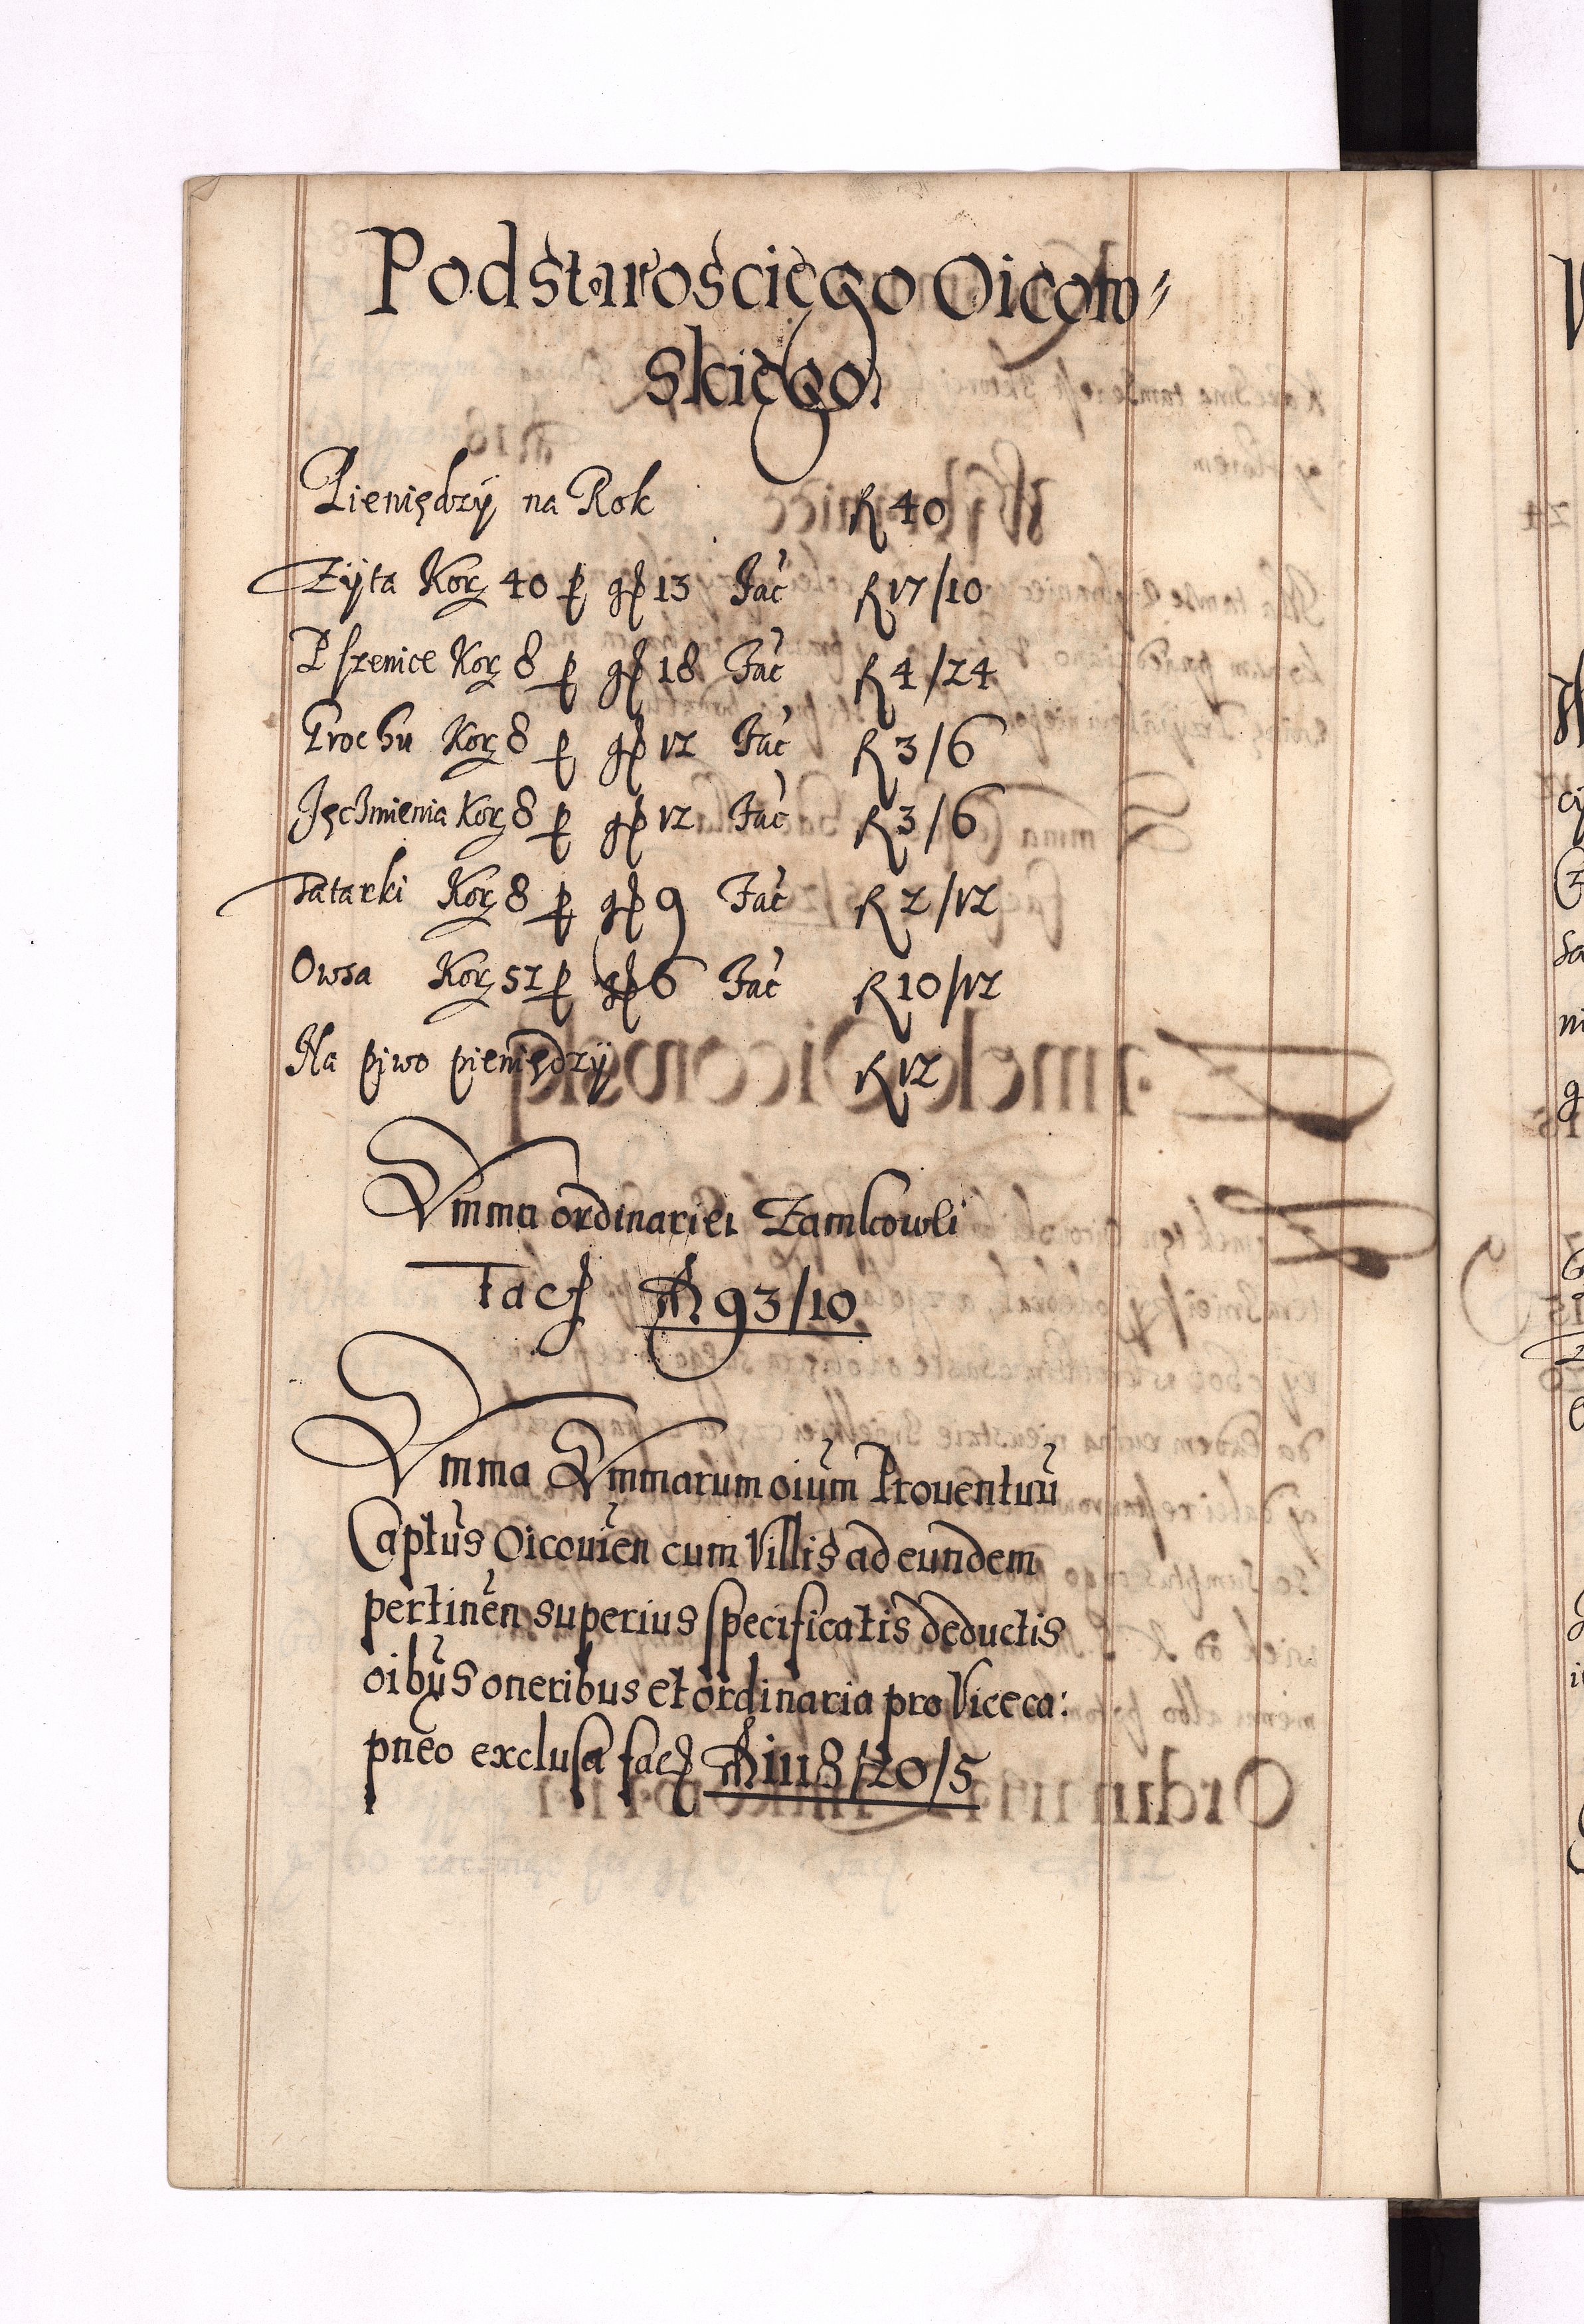 Podstarosciego Oicow⸗
skiego.
Pieniędzÿ na Rok fl 40
Zÿta Korz 40 p gr 13 Fać fl 17/10
Pszenice Korz 8 p gr 18 Fać fl 4/24
Grochu Korz 8 p gr 12 Fać fl 3/6
Jęchmienia Korz 8 p gr 12 Fać fl 3/6
Tatarki Korz 8 p gr 9 Fać fl 2/12
Owsa Korz 52 p gr 6 Fać fl 10/12
Na piwo pieniędzÿ fl 12
Summa ordinariei Zamkowei
Facz fl 93/10
Summa Summarum oium Prouentuu
Captus Oicouien cum Villis ad eundem
pertinen superius specificatis deductis
oibus oneribus et ordinaria pro Viceca:
pneo exclusa facz fl 1118/20/5